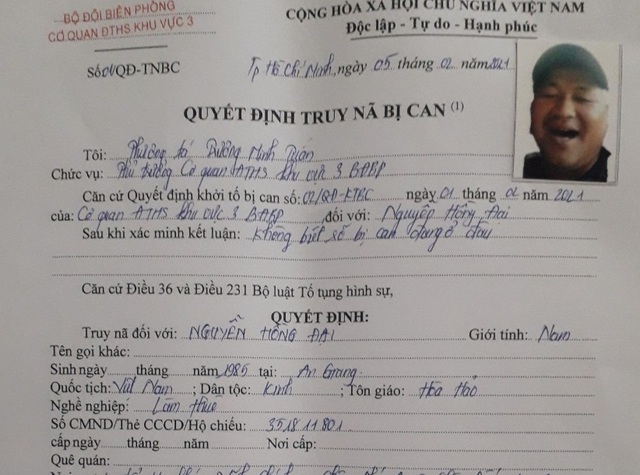 BỘ ĐỘI BIÊN PHÒNG
CƠ QUAN ĐTHS KHU VỰC 3
CỘNG HÒA XÃ HỘI CHỦ NGHĨA VIỆT NAM
Độc lập - Tự do - Hạnh phúc
Số:01/QĐ-TNBC
Tp Hồ Chí Minh, ngày 05 tháng 02 năm 2021
QUYẾT ĐỊNH TRUY NÃ BỊ CAN (1)
Tôi: Thượng tá Dương Minh
Chức vụ: Phó trưởng Cơ quan ĐTHS khu vực 3 BĐBP
Căn cứ Quyết định khởi tố bị can số: 02/QĐ-KTBC ngày 01 tháng 02 năm 2021
của: Cơ quan ĐTHS khu vực 3 BĐBP, đối với: Nguyễn Hồng Đại
Sau khi xác minh kết luận: Không biết số bị can đang ở đâu
Căn cứ Điều 36 và Điều 231 Bộ luật Tố tụng hình sự,
QUYẾT ĐỊNH:
Truy nã đối với: NGUYỄN HỒNG ĐẠI Giới tính: Nam
Tên gọi khác:
Sinh ngày tháng năm 1985 tại: An Giang
Quốc tịch: Việt Nam; Dân tộc: Kinh; Tôn giáo: Hòa Hảo
Nghề nghiệp: Làm thuê
Số CMND/Thẻ CCCD/Hộ chiếu: 351811801
cấp ngày tháng năm Nơi cấp:
Quê quán: